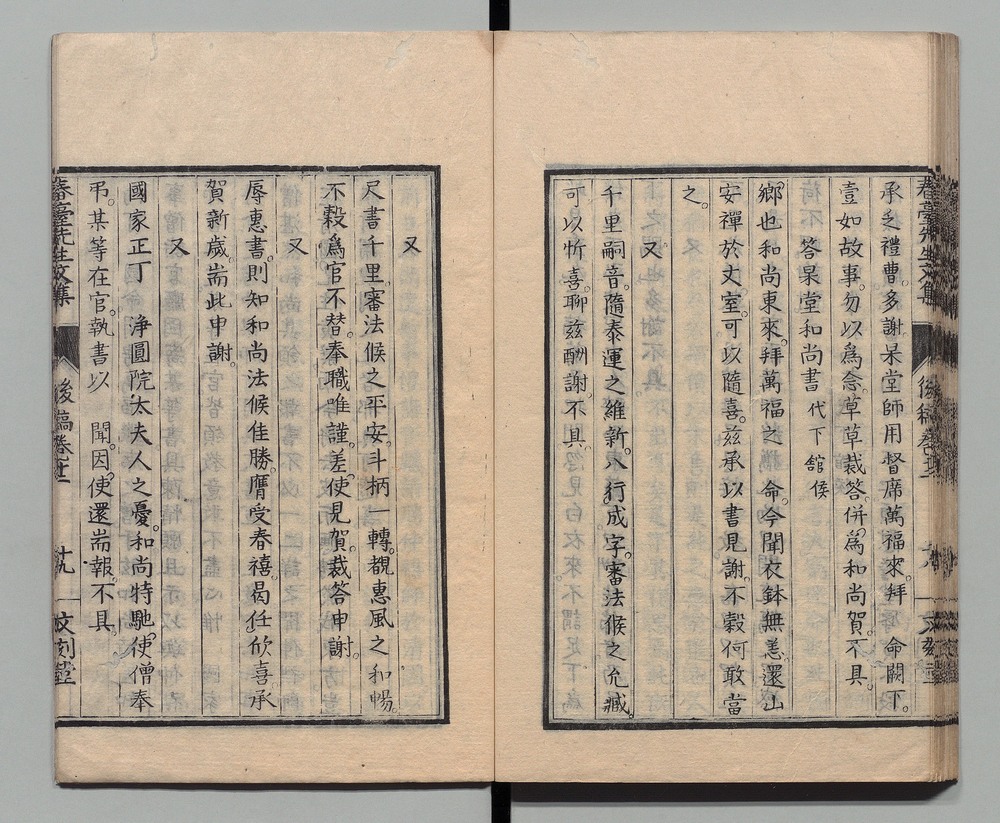 承乏禮曹。多謝杲堂師用督席萬福來拜　命闕下。
壹如故事。勿以爲念。草草裁答。併爲和尚賀。不具。
答杲堂和尚書　代下舘侯
鄉也和尚東來。拜萬福之　命。今聞衣鉢無恙。還山
安禪於丈室。可以隨喜。玆承以書見謝。不穀何敢當
之。
又
千里嗣音。隨泰運之維新。八行成字。審法候之允臧。
可以忻喜。聊玆酬謝。不具。
春臺先生文集　後稿卷十三　十九　文刻堂
又
尺書千里。審法候之平安。斗柄一轉。覩惠風之和暢。
不穀爲官不替。奉職唯謹。差使見賀。裁答申謝。
又
辱惠書。則知和尚法候佳勝。膺受春禧。曷任欣喜。承
賀新歲。耑此申謝。
又
國家正丁　浄圓院太夫人之憂。和尚特馳使僧奉
弔。某等在官。執書以　聞。因使還耑報。不具。